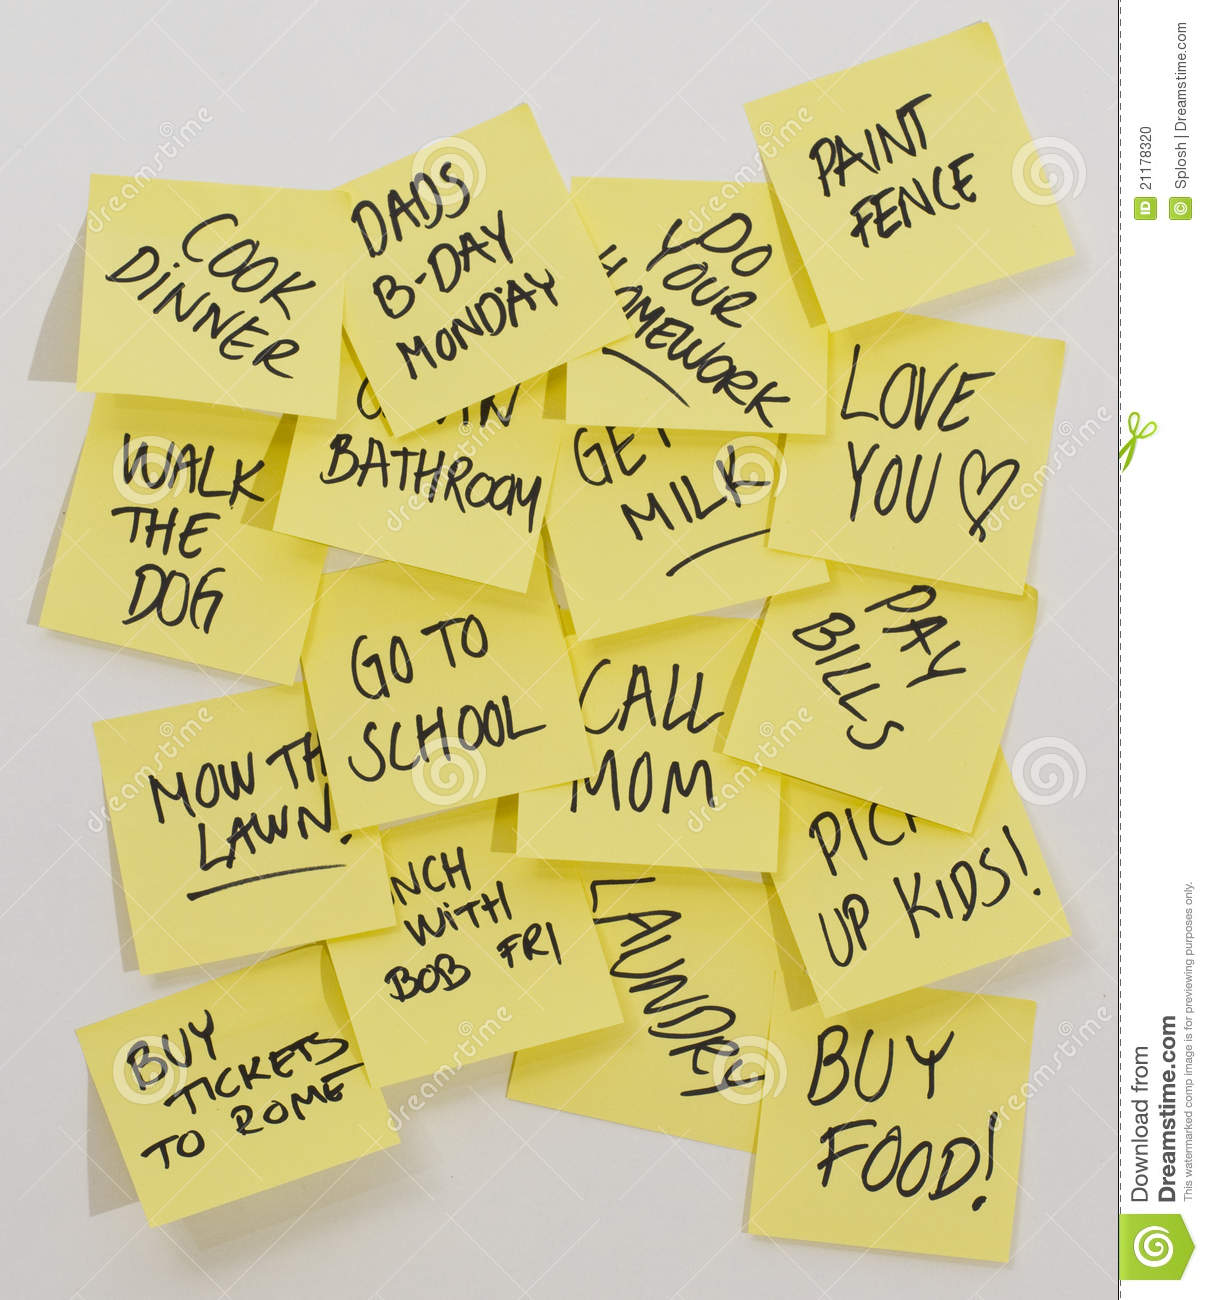 PAINT
FENCE
COOK
DINNER
DADS
B-DAY
MONDAY
DO
YOUR
LOVE
YOU
WALK
THE
DOG
BATHROOM
GET
MILK
GO TO
SCHOOL
CALL
MOM
PAY
BILLS
MOW
LAWN!
WITH
BOB FRI
LAUNDRY
UP KIDS!
BUY
TICKETS
TO ROME
BUY
FOOD!
dreamstime
ID 21178320
© Splosh | Dreamstime.com
Download from
Dreamstime.com
This watermarked comp image is for previewing purposes only.